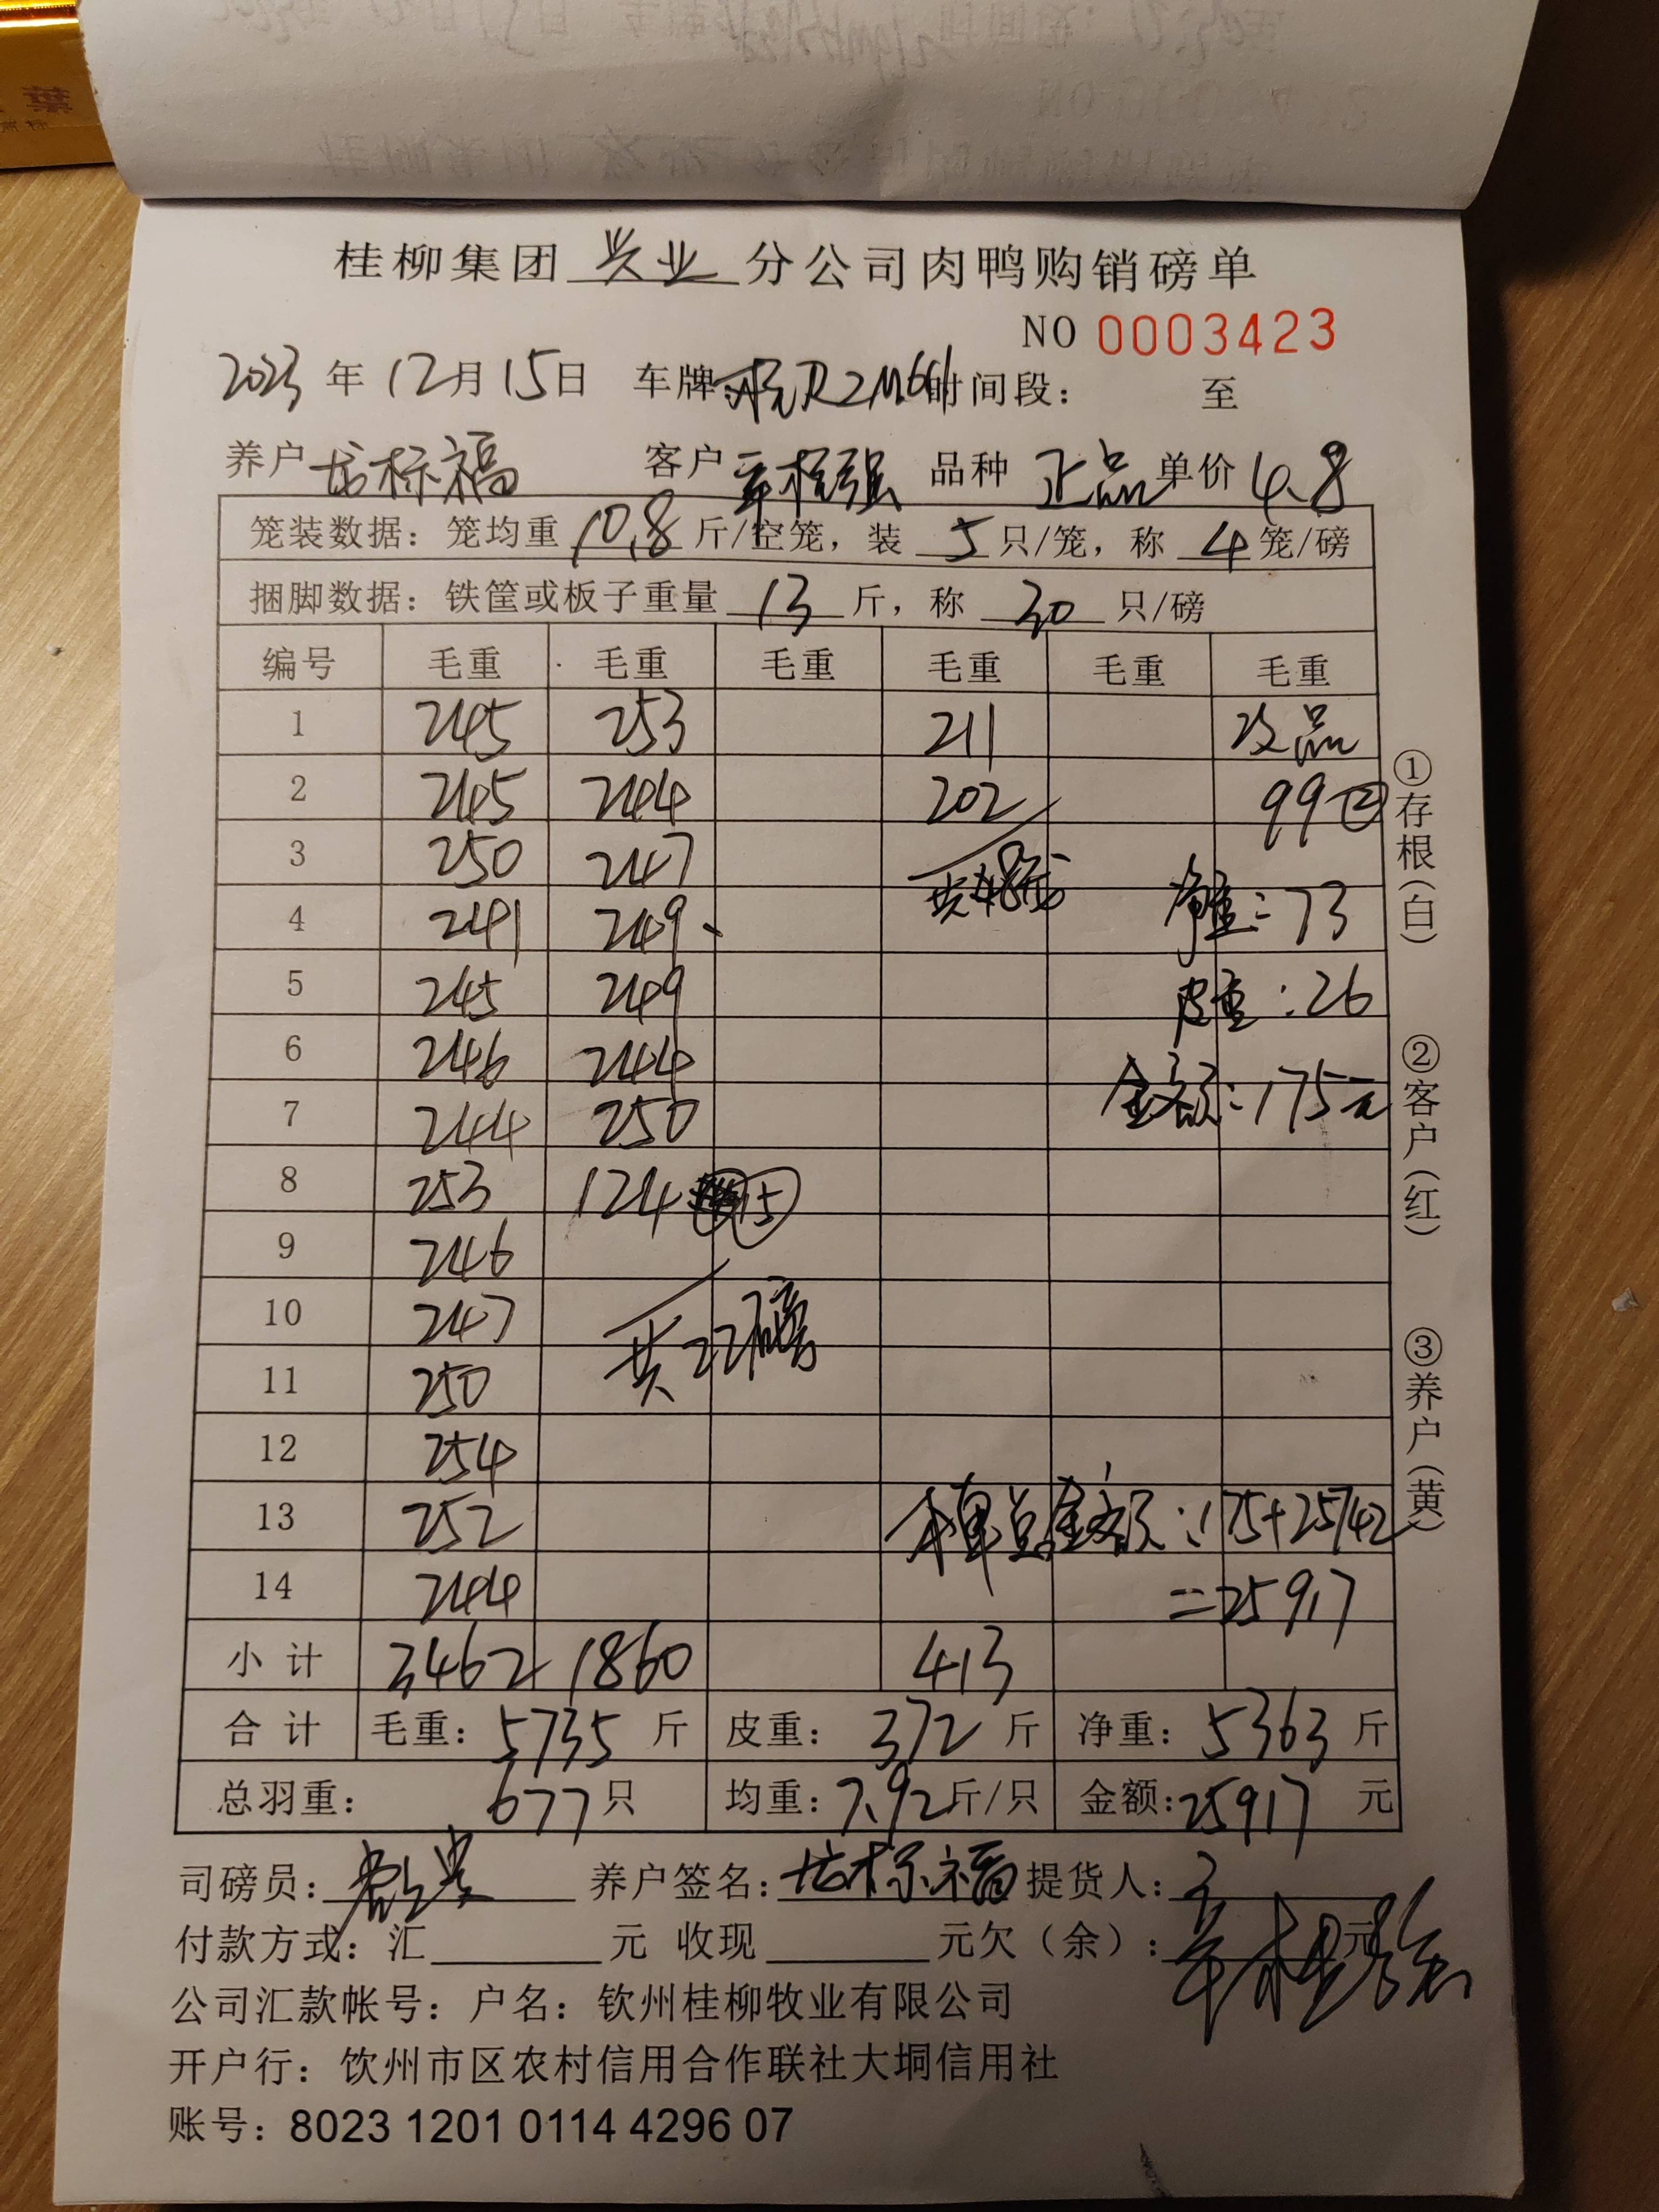 桂柳集团 兴业 分公司肉鸭购销磅单
NO 0003423
2023 年 12 月 15 日 车牌: 时间段: 至
养户 标福 客户 辛桂强 品种 正品 单价 4.8
笼装数据: 笼均重 10.8 斤/空笼, 装 5 只/笼, 称 4 笼/磅
捆脚数据: 铁筐或板子重量 13 斤, 称 30 只/磅
编号 毛重 毛重 毛重 毛重 毛重 毛重
1 245 253 211 次品
2 245 244 202 99 ②
3 250 247
4 241 249 净重: 73
5 245 249 皮重: 26
6 246 244
7 244 250 金额: 175元
8 253 124 ⑮
9 246
10 247 共22磅
11 250
12 254
13 252 本单总金额: 175+25742
14 244 =25917
小计 3462 1860 413
合计 毛重: 5735 斤 皮重: 372 斤 净重: 5363 斤
总羽重: 677 只 均重: 7.92 斤/只 金额: 25917 元
司磅员: 养户签名: 标福 提货人:
辛桂强
付款方式: 汇 元 收现 元欠(余): 元
公司汇款帐号: 户名: 钦州桂柳牧业有限公司
开户行: 饮州市区农村信用合作联社大垌信用社
账号: 8023 1201 0114 4296 07
①存根(白)
②客户(红)
③养户(黄)